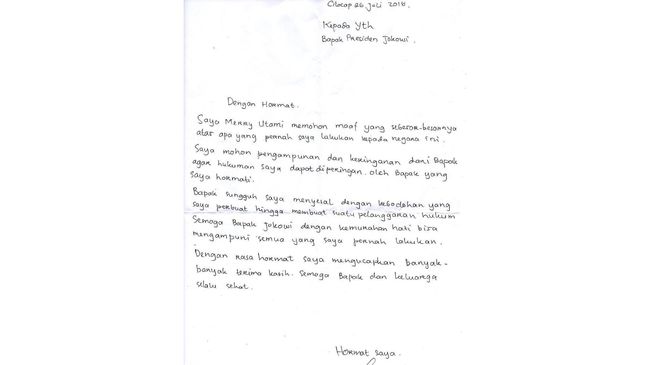 Cilacap 26 Juli 2016
Kepada Yth
Bapak Presiden Jokowi.
Dengan Hormat.
Saya Merry Utami memohon maaf yang sebesar-besarnya
atas apa yang pernah saya lakukan kepada negara ini.
Saya mohon pengampunan dan keringanan dari Bapak
agar hukuman saya dapat diperingan. oleh Bapak yang
saya hormati.
Bapak sungguh saya menyesal dengan kebodohan yang
saya perbuat hingga membuat suatu pelanggaran hukum
Semoga Bapak Jokowi dengan kemurahan hati bisa
mengampuni semua yang saya pernah lakukan.
Dengan rasa hormat saya mengucapkan banyak-
banyak terima kasih. Semoga Bapak dan keluarga
selalu sehat.
Hormat saya.